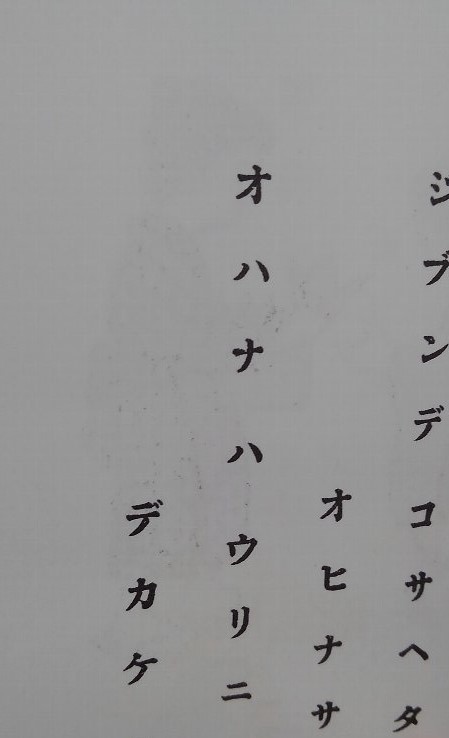 ジブンデコサヘタ
オヒナサ
オハナハウリニ
デカケ